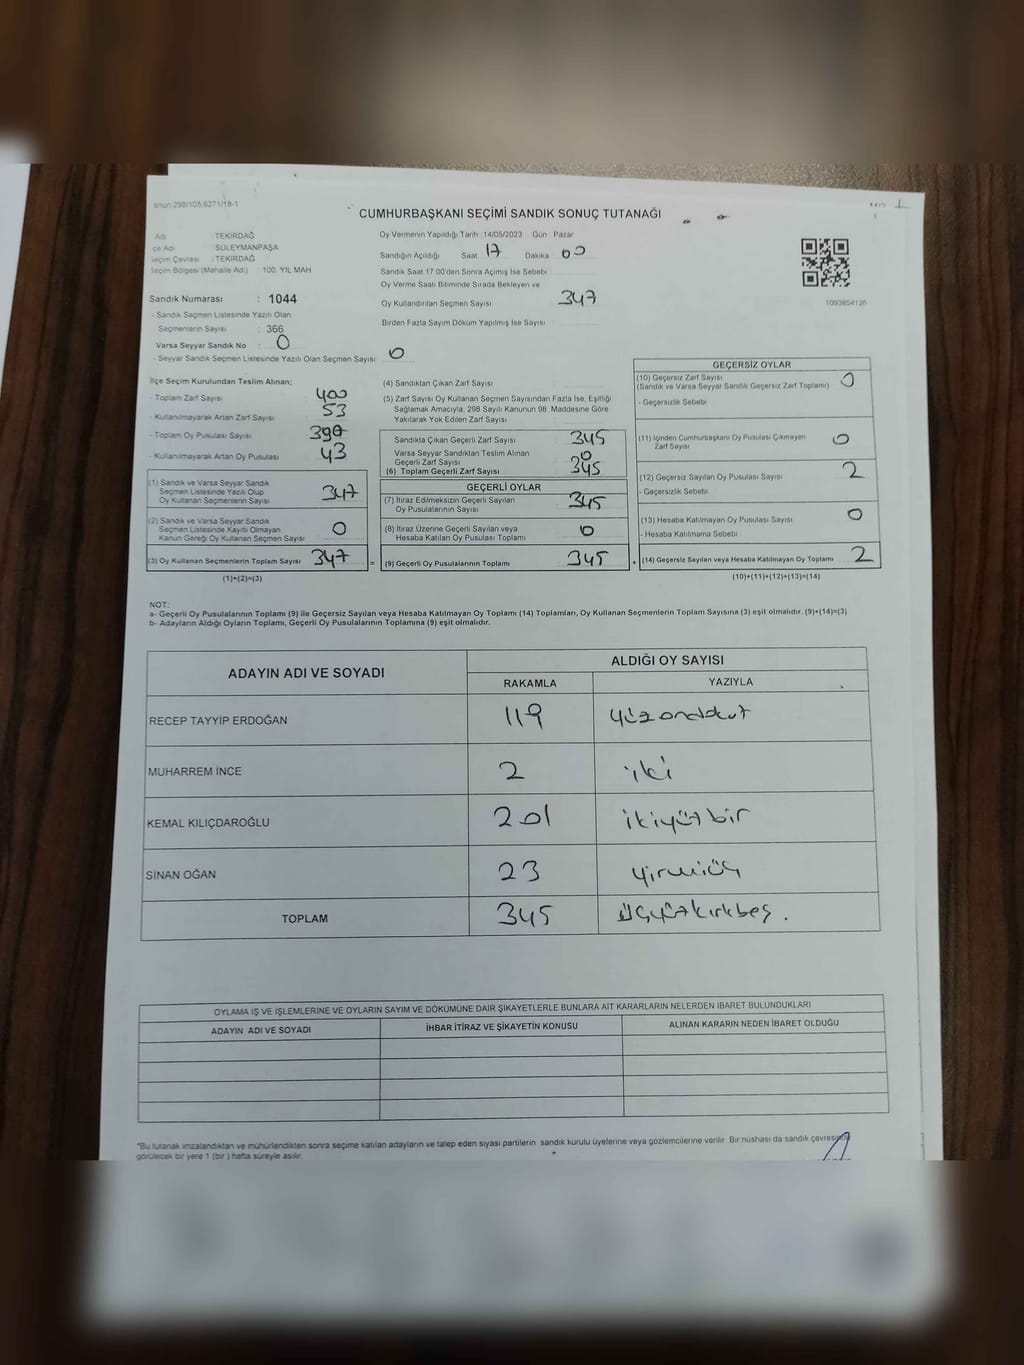 CUMHURBAŞKANI SEÇİMİ SANDIK SONUÇ TUTANAĞI
Adı : TEKİRDAĞ
çe Adı : SÜLEYMANPAŞA
eçim Çevresi : TEKİRDAĞ
eçim Bölgesi (Mahalle Adı) : 100. YIL MAH
Sandık Numarası : 1044
- Sandık Seçmen Listesinde Yazılı Olan
Seçmenlerin Sayısı : 366
Varsa Seyyar Sandık No : 0
- Seyyar Sandık Seçmen Listesinde Yazılı Olan Seçmen Sayısı 0
Oy Vermenin Yapıldığı Tarih :14/05/2023 Gün : Pazar
Sandığın Açıldığı Saat 17 Dakika 00
Sandık Saat 17.00'den Sonra Açımış İse Sebebi
Oy Verme Saati Bitiminde Sırada Bekleyen ve
Oy Kullandırılan Seçmen Sayısı 347
Birden Fazla Sayım Döküm Yapılmış İse Sayısı
1093854126
İlçe Seçim Kurulundan Teslim Alınan;
- Toplam Zarf Sayısı 400
- Kullanılmayarak Artan Zarf Sayısı 53
- Toplam Oy Pusulası Sayısı 390
- Kullanılmayarak Artan Oy Pusulası 43
(1) Sandık ve Varsa Seyyar Sandık
Seçmen Listesinde Yazılı Olup
Oy Kullanan Seçmenlerin Sayısı 347
(2) Sandık ve Varsa Seyyar Sandık
Seçmen Listesinde Kayıtlı Olmayan
Kanun Gereği Oy Kullanan Seçmen Sayısı 0
(3) Oy Kullanan Seçmenlerin Toplam Sayısı 347 =
(1)+(2)=(3)
(4) Sandıktan Çıkan Zarf Sayısı
(5) Zarf Sayısı Oy Kullanan Seçmen Sayısından Fazla İse, Eşitliği
Sağlamak Amacıyla, 298 Sayılı Kanunun 98. Maddesine Göre
Yakılarak Yok Edilen Zarf Sayısı
Sandıkta Çıkan Geçerli Zarf Sayısı 345
Varsa Seyyar Sandıktan Teslim Alınan
Geçerli Zarf Sayısı 0
(6) Toplam Geçerli Zarf Sayısı 345
GEÇERLİ OYLAR
(7) İtiraz Edilmeksizin Geçerli Sayılan
Oy Pusulalarının Sayısı 345
(8) İtiraz Üzerine Geçerli Sayılan veya
Hesaba Katılan Oy Pusulası Toplamı 0
(9) Geçerli Oy Pusulalarının Toplamı 345 +
GEÇERSİZ OYLAR
(10) Geçersiz Zarf Sayısı 0
(Sandık ve Varsa Seyyar Sandık Geçersiz Zarf Toplamı)
- Geçersizlik Sebebi
(11) İçinden Cumhurbaşkanı Oy Pusulası Çıkmayan
Zarf Sayısı 0
(12) Geçersiz Sayılan Oy Pusulası Sayısı 2
- Geçersizlik Sebebi
(13) Hesaba Katılmayan Oy Pusulası Sayısı 0
- Hesaba Katılmama Sebebi
(14) Geçersiz Sayılan veya Hesaba Katılmayan Oy Toplamı 2
(10)+(11)+(12)+(13)=(14)
NOT:
a- Geçerli Oy Pusulalarının Toplamı (9) ile Geçersiz Sayılan veya Hesaba Katılmayan Oy Toplamı (14) Toplamları, Oy Kullanan Seçmenlerin Toplam Sayısına (3) eşit olmalıdır. (9)+(14)=(3)
b- Adayların Aldığı Oyların Toplamı, Geçerli Oy Pusulalarının Toplamına (9) eşit olmalıdır.
ADAYIN ADI VE SOYADI
ALDIĞI OY SAYISI
RAKAMLA YAZIYLA
RECEP TAYYİP ERDOĞAN 119
MUHARREM İNCE 2 iki
KEMAL KILIÇDAROĞLU 201 ikiyüzbir
SİNAN OĞAN 23 yirmiüç
TOPLAM 345 üçyüzkırkbeş.
OYLAMA İŞ VE İŞLEMLERİNE VE OYLARIN SAYIM VE DÖKÜMÜNE DAİR ŞİKAYETLERLE BUNLARA AİT KARARLARIN NELERDEN İBARET BULUNDUKLARI
ADAYIN ADI VE SOYADI İHBAR İTİRAZ VE ŞİKAYETİN KONUSU ALINAN KARARIN NEDEN İBARET OLDUĞU
"Bu tutanak imzalandıktan ve mühürlendikten sonra seçime katılan adayların ve talep eden siyasi partilerin sandık kurulu üyelerine veya gözlemcilerine verilir. Bir nüshası da sandık çevresinde
görülecek bir yere 1 (bir ) hafta süreyle asılır.